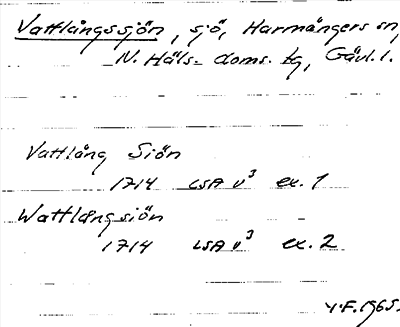 Vattlångssjön, sjö, Harmångers sn,
N. Häls. doms. tg, Gävl. l.
Vattlång Siön
1714 LSA V³ ex. 1
Wattlångsiön
1714 LSA V³ ex. 2
Y.F. 1965.